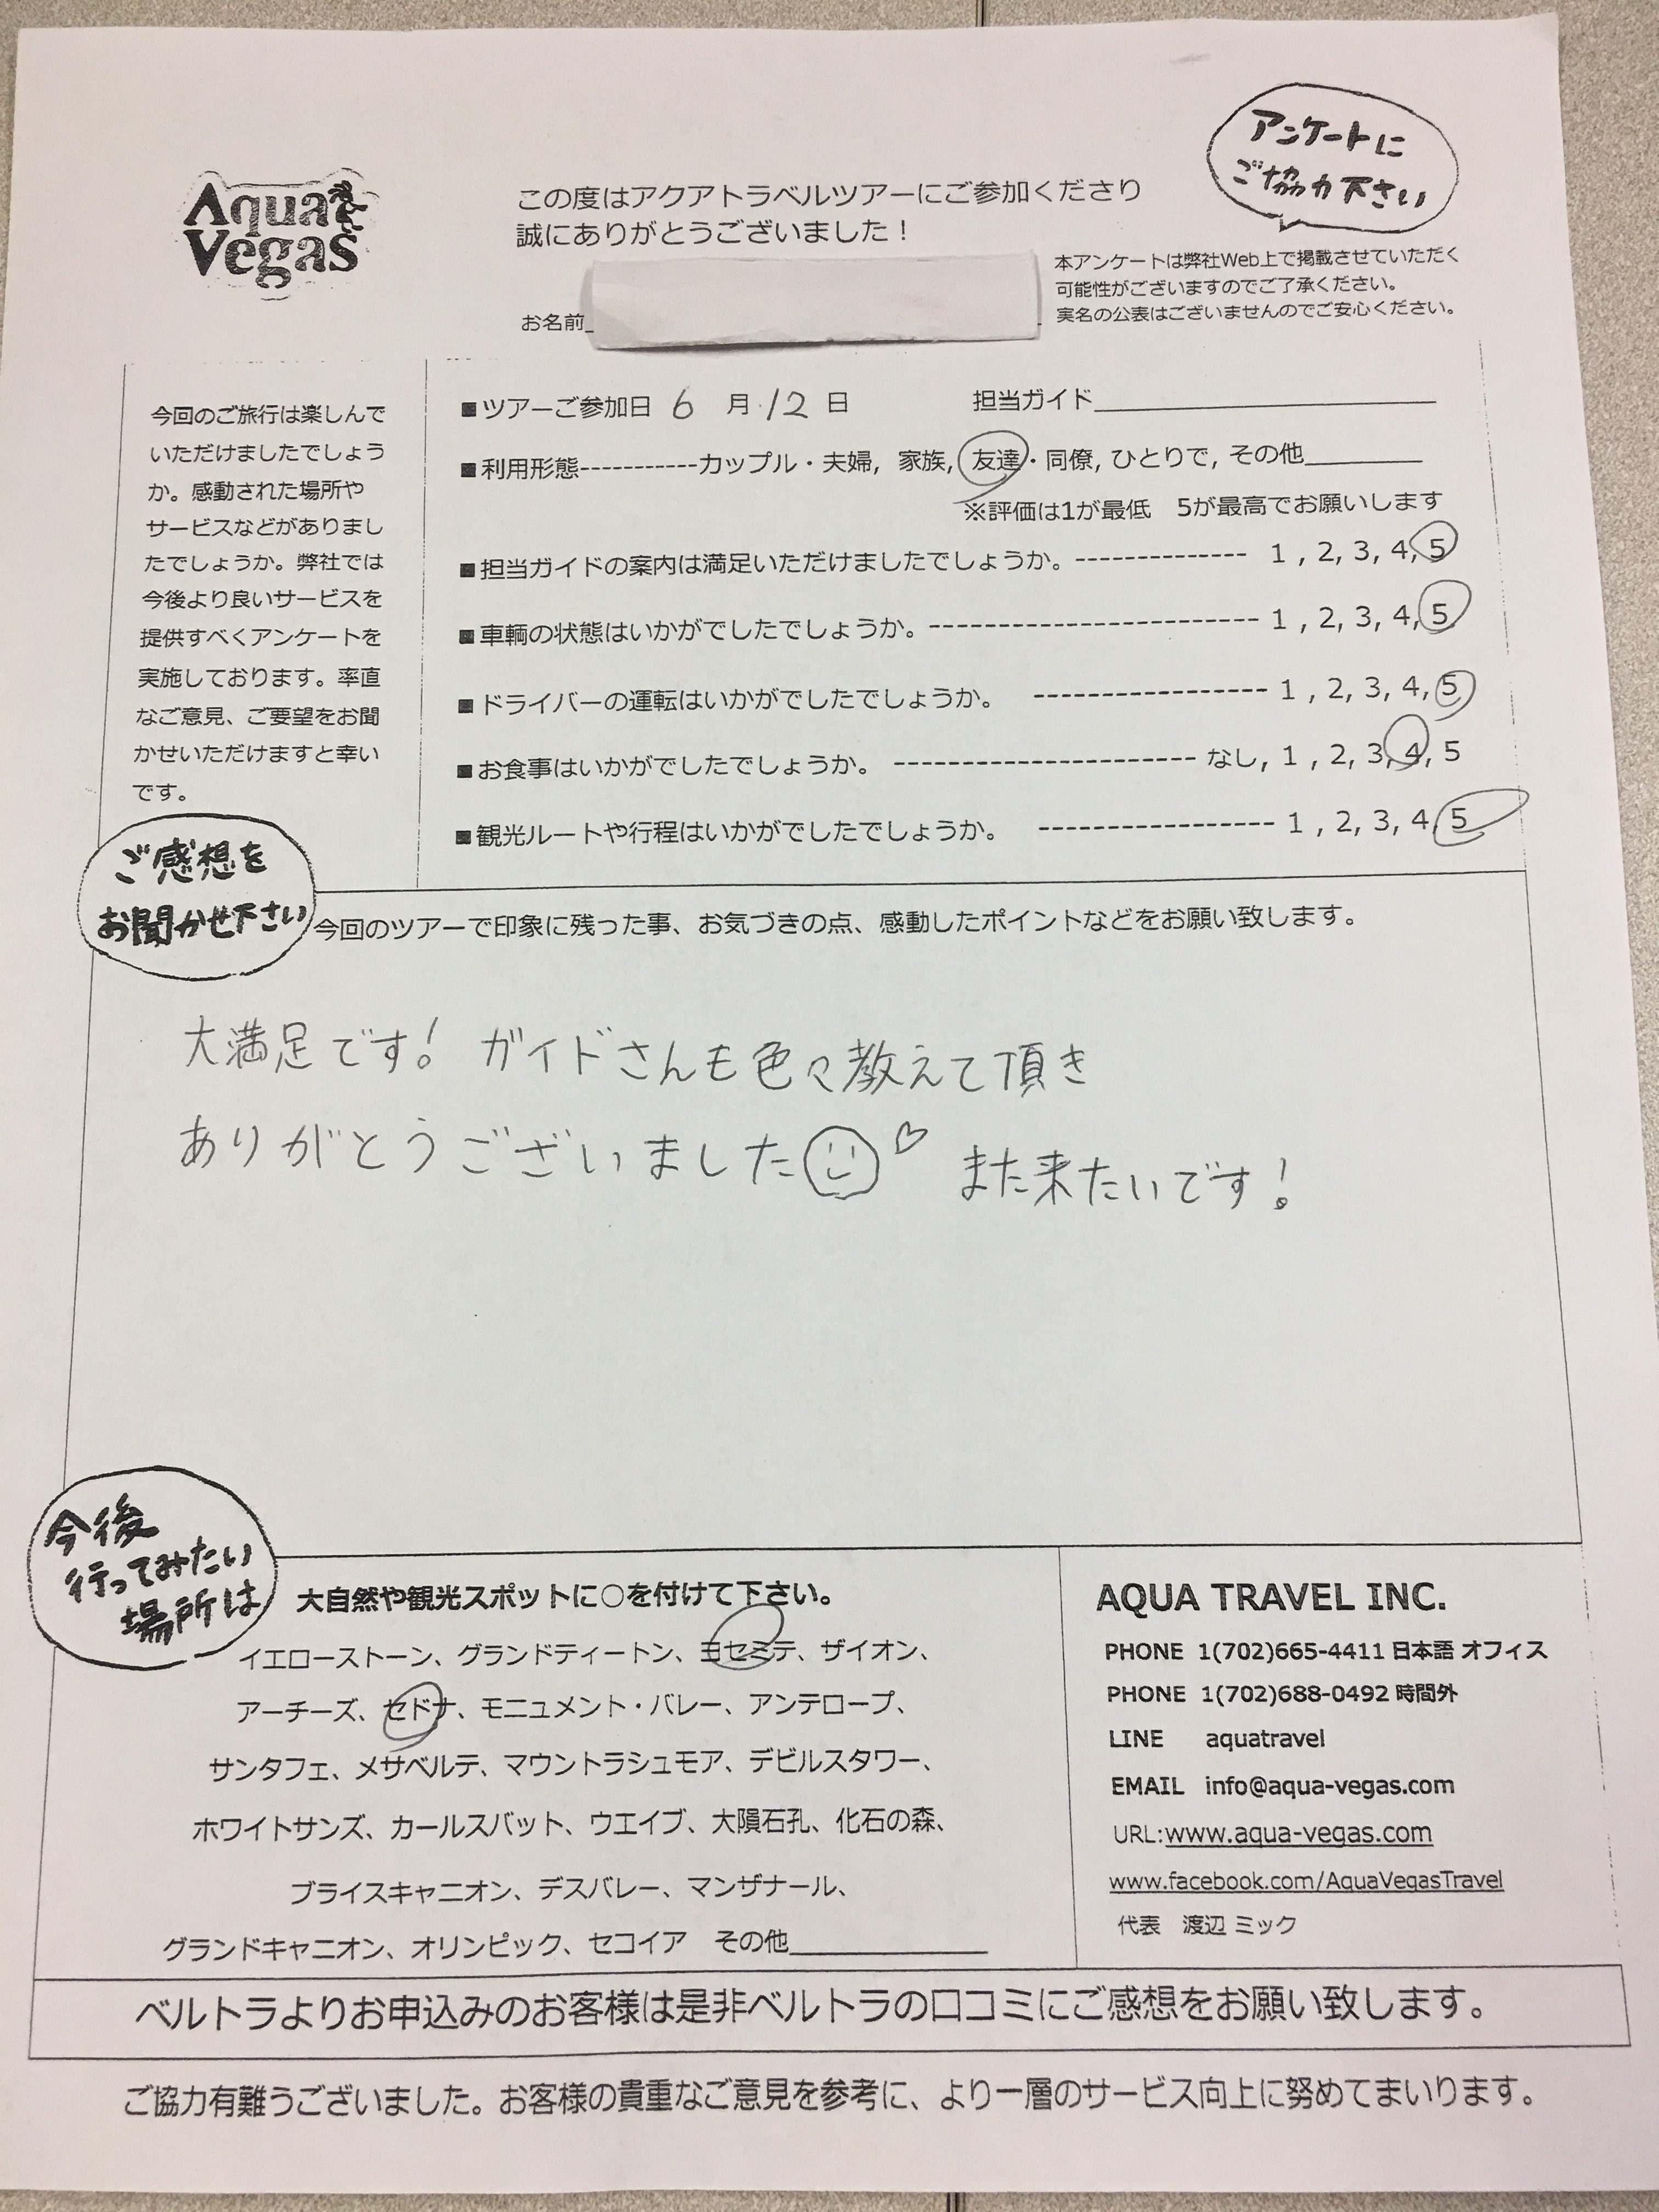 Aqua
Vegas
この度はアクアトラベルツアーにご参加くださり
誠にありがとうございました！
アンケートに
ご協力下さい
本アンケートは弊社Web上で掲載させていただく
可能性がございますのでご了承ください。
実名の公表はございませんのでご安心ください。
お名前
今回のご旅行は楽しんで
いただけましたでしょう
か。感動された場所や
サービスなどがありまし
たでしょうか。弊社では
今後より良いサービスを
提供すべくアンケートを
実施しております。率直
なご意見、ご要望をお聞
かせいただけますと幸い
です。
■ツアーご参加日 6 月 12 日 担当ガイド
■利用形態-----------カップル・夫婦, 家族, 友達・同僚, ひとりで, その他
※評価は1が最低 5が最高でお願いします
■担当ガイドの案内は満足いただけましたでしょうか。-------------- 1 , 2, 3, 4, 5
■車輌の状態はいかがでしたでしょうか。------------------------ 1 , 2, 3, 4, 5
■ドライバーの運転はいかがでしたでしょうか。 ----------------- 1 , 2, 3, 4, 5
■お食事はいかがでしたでしょうか。 ---------------------- なし, 1 , 2, 3, 4, 5
■観光ルートや行程はいかがでしたでしょうか。 ----------------- 1 , 2, 3, 4, 5
ご感想を
お聞かせ下さい
今回のツアーで印象に残った事、お気づきの点、感動したポイントなどをお願い致します。
大満足です! ガイドさんも色々教えて頂き
ありがとうございました また来たいです!
今後
行ってみたい
場所は
大自然や観光スポットに○を付けて下さい。
イエローストーン、グランドティートン、ヨセミテ、ザイオン、
アーチーズ、セドナ、モニュメント・バレー、アンテロープ、
サンタフェ、メサベルテ、マウントラシュモア、デビルスタワー、
ホワイトサンズ、カールスバット、ウエイブ、大隕石孔、化石の森、
ブライスキャニオン、デスバレー、マンザナール、
グランドキャニオン、オリンピック、セコイア その他
AQUA TRAVEL INC.
PHONE 1(702)665-4411 日本語 オフィス
PHONE 1(702)688-0492 時間外
LINE aquatravel
EMAIL info@aqua-vegas.com
URL:www.aqua-vegas.com
www.facebook.com/AquaVegasTravel
代表 渡辺 ミック
ベルトラよりお申込みのお客様は是非ベルトラの口コミにご感想をお願い致します。
ご協力有難うございました。お客様の貴重なご意見を参考に、より一層のサービス向上に努めてまいります。